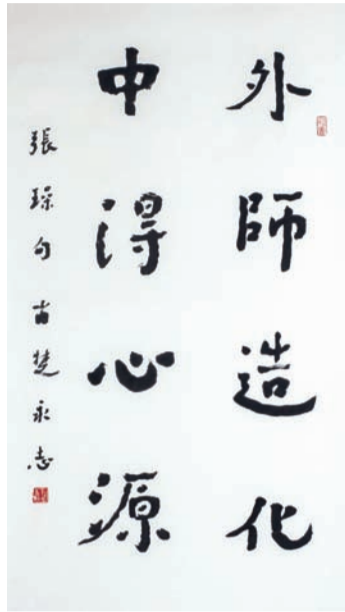 外師造化
中得心源
張璪句古楚永志